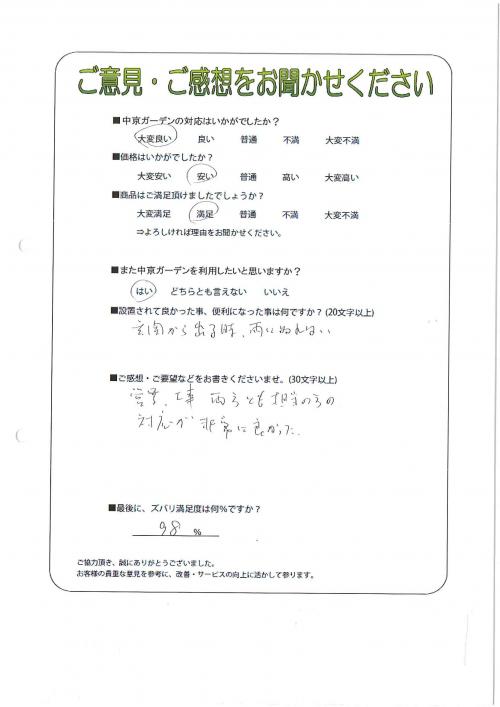 ご意見・ご感想をお聞かせください
■中京ガーデンの対応はいかがでしたか？
大変良い 良い 普通 不満 大変不満
■価格はいかがでしたか？
大変安い 安い 普通 高い 大変高い
■商品はご満足頂けましたでしょうか？
大変満足 満足 普通 不満 大変不満
⇒よろしければ理由をお聞かせください。
■また中京ガーデンを利用したいと思いますか？
はい どちらとも言えない いいえ
■設置されて良かった事、便利になった事は何ですか？(20文字以上)
玄関から出る時、雨にぬれない
■ご感想・ご要望などをお書きくださいませ。(30文字以上)
営業、工事 両方とも担当の方の
対応が非常に良かった。
■最後に、ズバリ満足度は何％ですか？
98 %
ご協力頂き、誠にありがとうございました。
お客様の貴重な意見を参考に、改善・サービスの向上に活かして参ります。